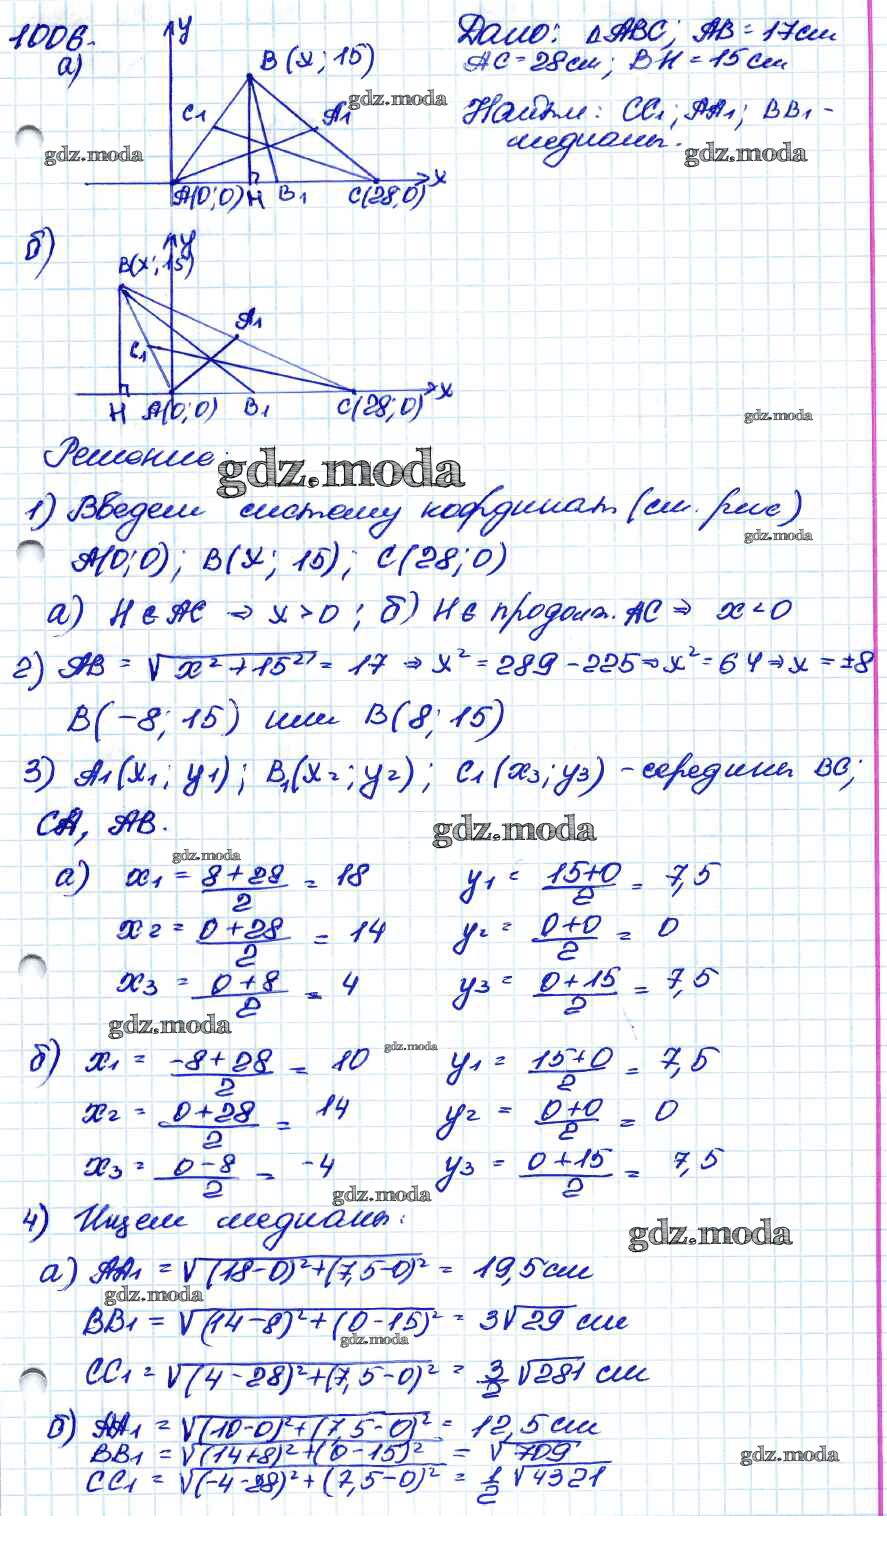 1006.
а)
y
B (x; 15)
C₁
A₁
A(0;0) H B₁ C(28;0) x
Дано: △ABC; AB = 17см
AC = 28см; BH = 15см
Найти: CC₁; AA₁; BB₁ -
медианы.
gdz.moda
gdz.moda
gdz.moda
б)
y
B(x; 15)
A₁
C₁
H A(0;0) B₁ C(28;0) x
gdz.moda
Решение:
gdz.moda
1) Введем систему координат (см. рис)
gdz.moda
A(0;0); B(x; 15); C(28;0)
а) H ∈ AC ⇒ x > 0; б) H ∈ продолж. AC ⇒ x < 0
2) AB = √(x² + 15²) = 17 ⇒ x² = 289 - 225 ⇒ x² = 64 ⇒ x = ±8
B(-8; 15) или B(8; 15)
3) A₁(x₁; y₁); B₁(x₂; y₂); C₁(x₃; y₃) - середины BC;
CA, AB.
gdz.moda
gdz.moda
а) x₁ = (8+28)/2 = 18 y₁ = (15+0)/2 = 7,5
x₂ = (0+28)/2 = 14 y₂ = (0+0)/2 = 0
x₃ = (0+8)/2 = 4 y₃ = (0+15)/2 = 7,5
gdz.moda
gdz.moda
б) x₁ = (-8+28)/2 = 10 y₁ = (15+0)/2 = 7,5
x₂ = (0+28)/2 = 14 y₂ = (0+0)/2 = 0
x₃ = (0-8)/2 = -4 y₃ = (0+15)/2 = 7,5
gdz.moda
4) Ищем медианы:
gdz.moda
а) AA₁ = √((18-0)²+(7,5-0)²) = 19,5см
gdz.moda
BB₁ = √((14-8)²+(0-15)²) = 3√29 см
gdz.moda
CC₁ = √((4-28)²+(7,5-0)²) = 3/2 √281 см
б) AA₁ = √((10-0)²+(7,5-0)²) = 12,5см
BB₁ = √((14+8)²+(0-15)²) = √709
gdz.moda
CC₁ = √((-4-28)²+(7,5-0)²) = 1/2 √4321